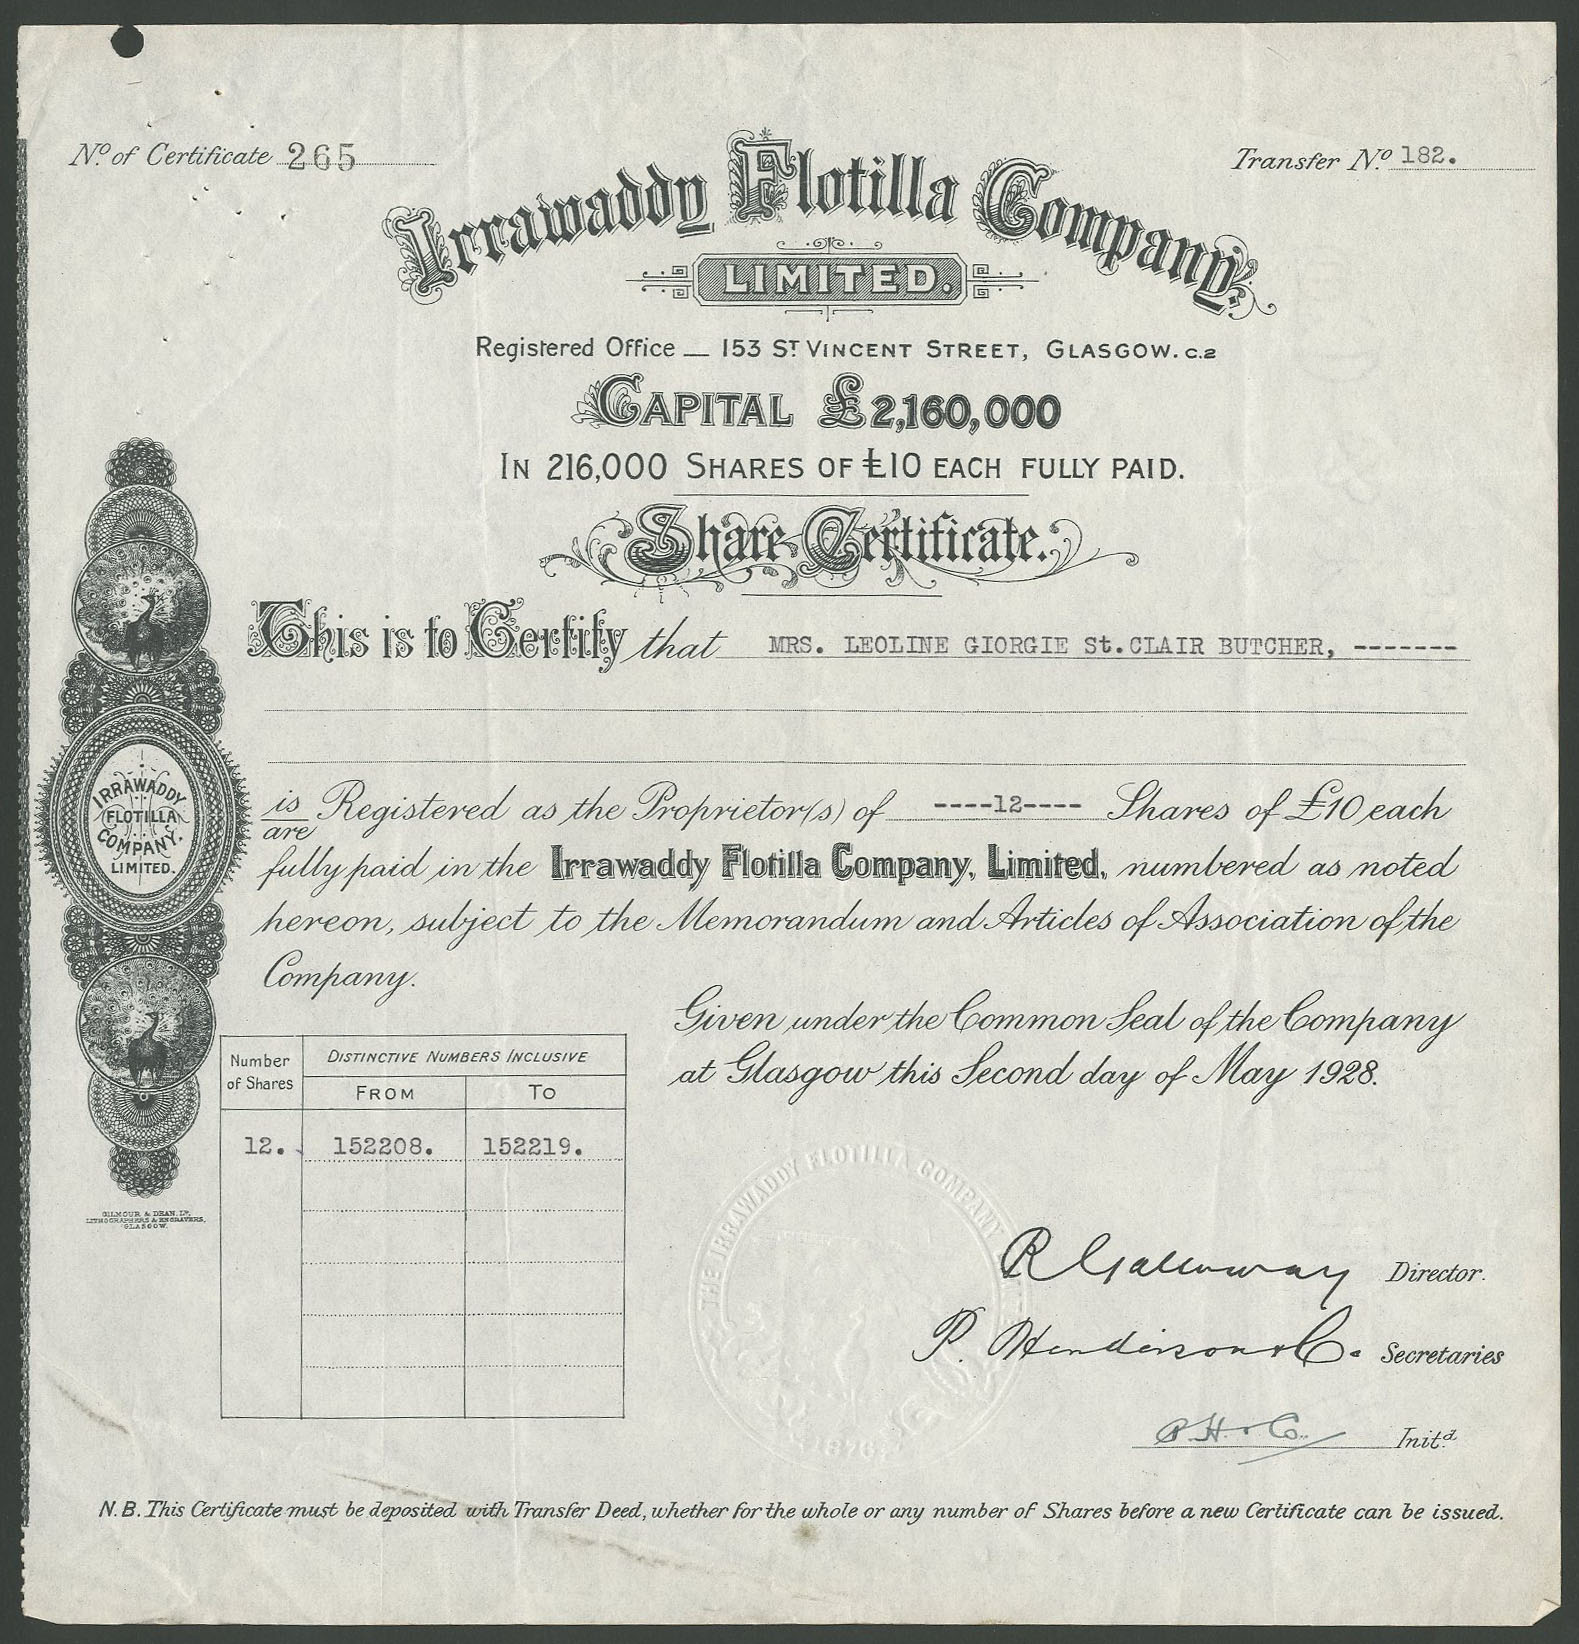 No. of Certificate 265
Transfer No. 182.
Irrawaddy Flotilla Company,
LIMITED.
Registered Office — 153 ST. VINCENT STREET, GLASGOW. C.2
CAPITAL £2,160,000
IN 216,000 SHARES OF £10 EACH FULLY PAID.
Share Certificate.
This is to Certify that MRS. LEOLINE GIORGIE St.CLAIR BUTCHER, -------
is/are Registered as the Proprietor(s) of ----12---- Shares of £10 each
fully paid in the Irrawaddy Flotilla Company, Limited, numbered as noted
hereon, subject to the Memorandum and Articles of Association of the
Company.
Given under the Common Seal of the Company
at Glasgow this Second day of May 1928.
IRRAWADDY
FLOTILLA
COMPANY.
LIMITED.
GILMOUR & DEAN, LD.
LITHOGRAPHERS & ENGRAVERS,
GLASGOW.
Number of Shares
DISTINCTIVE NUMBERS INCLUSIVE
FROM TO
12. 152208. 152219.
THE IRRAWADDY FLOTILLA COMPANY
1876
R Galloway Director.
P. Henderson & Co. Secretaries
P. H. & Co. Initd.
N.B. This Certificate must be deposited with Transfer Deed, whether for the whole or any number of Shares before a new Certificate can be issued.